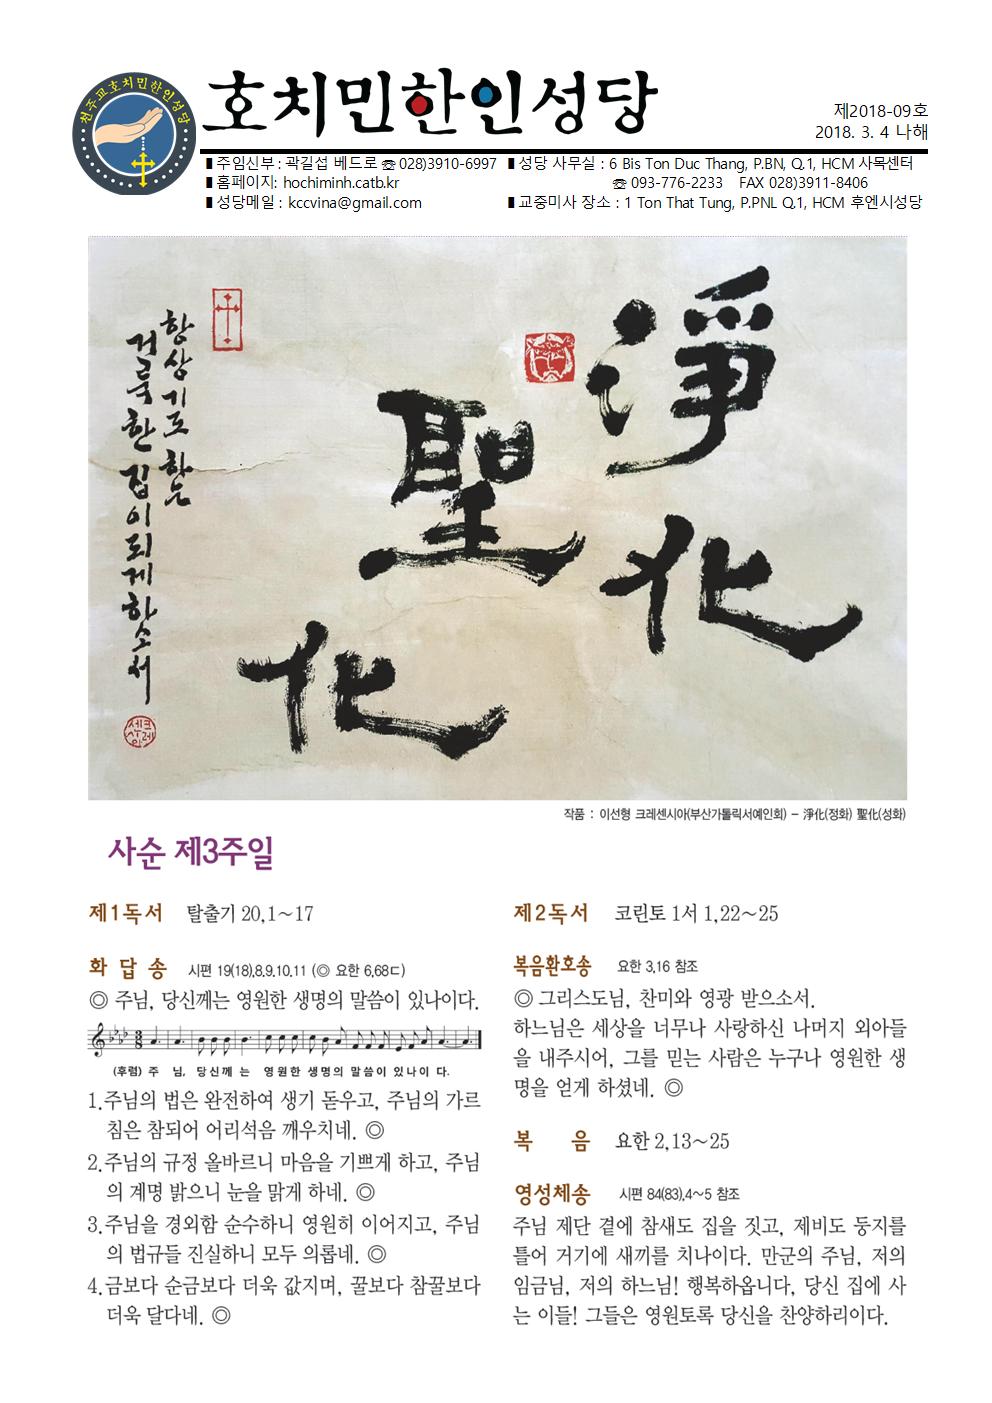 천주교호치민한인성당
호치민한인성당
제2018-09호
2018. 3. 4 나해
▮주임신부 : 곽길섭 베드로 ☏ 028)3910-6997
▮홈페이지: hochiminh.catb.kr
▮성당메일 : kccvina@gmail.com
▮성당 사무실 : 6 Bis Ton Duc Thang, P.BN, Q.1, HCM 사목센터
☏ 093-776-2233 FAX 028)3911-8406
▮교중미사 장소 : 1 Ton That Tung, P.PNL Q.1, HCM 후엔시성당
淨化
聖化
항상 기도 하는
거룩한 집이 되게 하소서
크레
센시아
작품 : 이선형 크레센시아(부산가톨릭서예인회) - 淨化(정화) 聖化(성화)
사순 제3주일
제1독서 탈출기 20,1~17
화 답 송 시편 19(18),8.9.10.11 (◎ 요한 6,68ㄷ)
◎ 주님, 당신께는 영원한 생명의 말씀이 있나이다.
(후렴) 주 님, 당신께 는 영원한 생명의 말씀이 있나이 다.
1.주님의 법은 완전하여 생기 돋우고, 주님의 가르
침은 참되어 어리석음 깨우치네. ◎
2.주님의 규정 올바르니 마음을 기쁘게 하고, 주님
의 계명 밝으니 눈을 맑게 하네. ◎
3.주님을 경외함 순수하니 영원히 이어지고, 주님
의 법규들 진실하니 모두 의롭네. ◎
4.금보다 순금보다 더욱 값지며, 꿀보다 참꿀보다
더욱 달다네. ◎
제2독서 코린토 1서 1,22~25
복음환호송 요한 3,16 참조
◎ 그리스도님, 찬미와 영광 받으소서.
하느님은 세상을 너무나 사랑하신 나머지 외아들
을 내주시어, 그를 믿는 사람은 누구나 영원한 생
명을 얻게 하셨네. ◎
복 음 요한 2,13~25
영성체송 시편 84(83),4~5 참조
주님 제단 곁에 참새도 집을 짓고, 제비도 둥지를
틀어 거기에 새끼를 치나이다. 만군의 주님, 저의
임금님, 저의 하느님! 행복하옵니다, 당신 집에 사
는 이들! 그들은 영원토록 당신을 찬양하리이다.